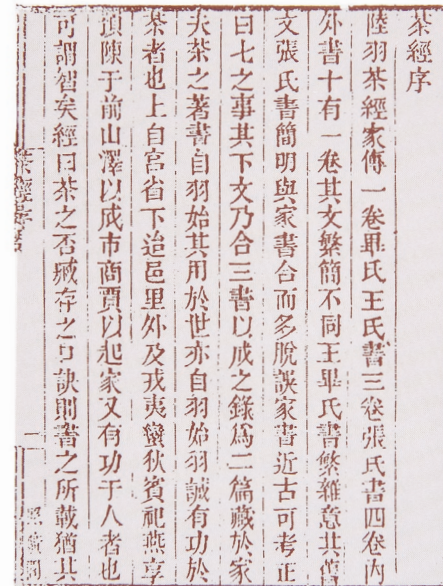 茶經序
陸羽茶經家傳一卷畢氏王氏書三卷張氏書四卷內
外書十有一卷其文繁簡不同王畢氏書繁雜意其舊
文張氏書簡明與家書合而多脫誤家書近古可考正
曰七之事其下文乃合三書以成之錄爲二篇藏於家
夫茶之著書自羽始其用於世亦自羽始羽誠有功於
茶者也上自宮省下迨邑里外及戎夷蠻狄賓祀燕享
預陳于前山澤以成市商賈以起家又有功于人者也
可謂智矣經曰茶之否臧存之口訣則書之所載猶其
茶經序
一